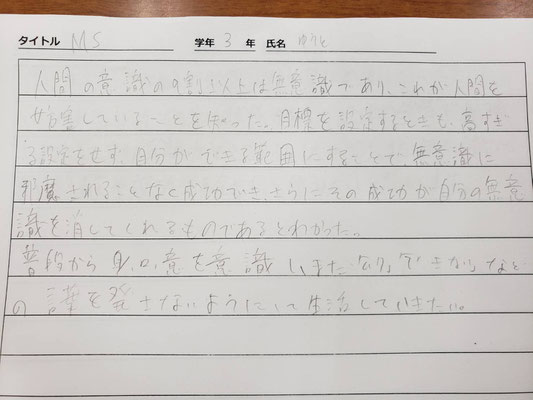 タイトル MS 学年 3 年 氏名 ゆうと
人間の意識の9割以上は無意識であり、これが人間を
妨害していることを知った。目標を設定するときも、高すぎ
る設定をせず、自分ができる範囲にすることで無意識に
邪魔されることなく成功でき、さらにその成功が自分の無意
識を消してくれるものであるとわかった。
普段から 意を意識し、また など
の言葉を発さないようにして生活していきたい。